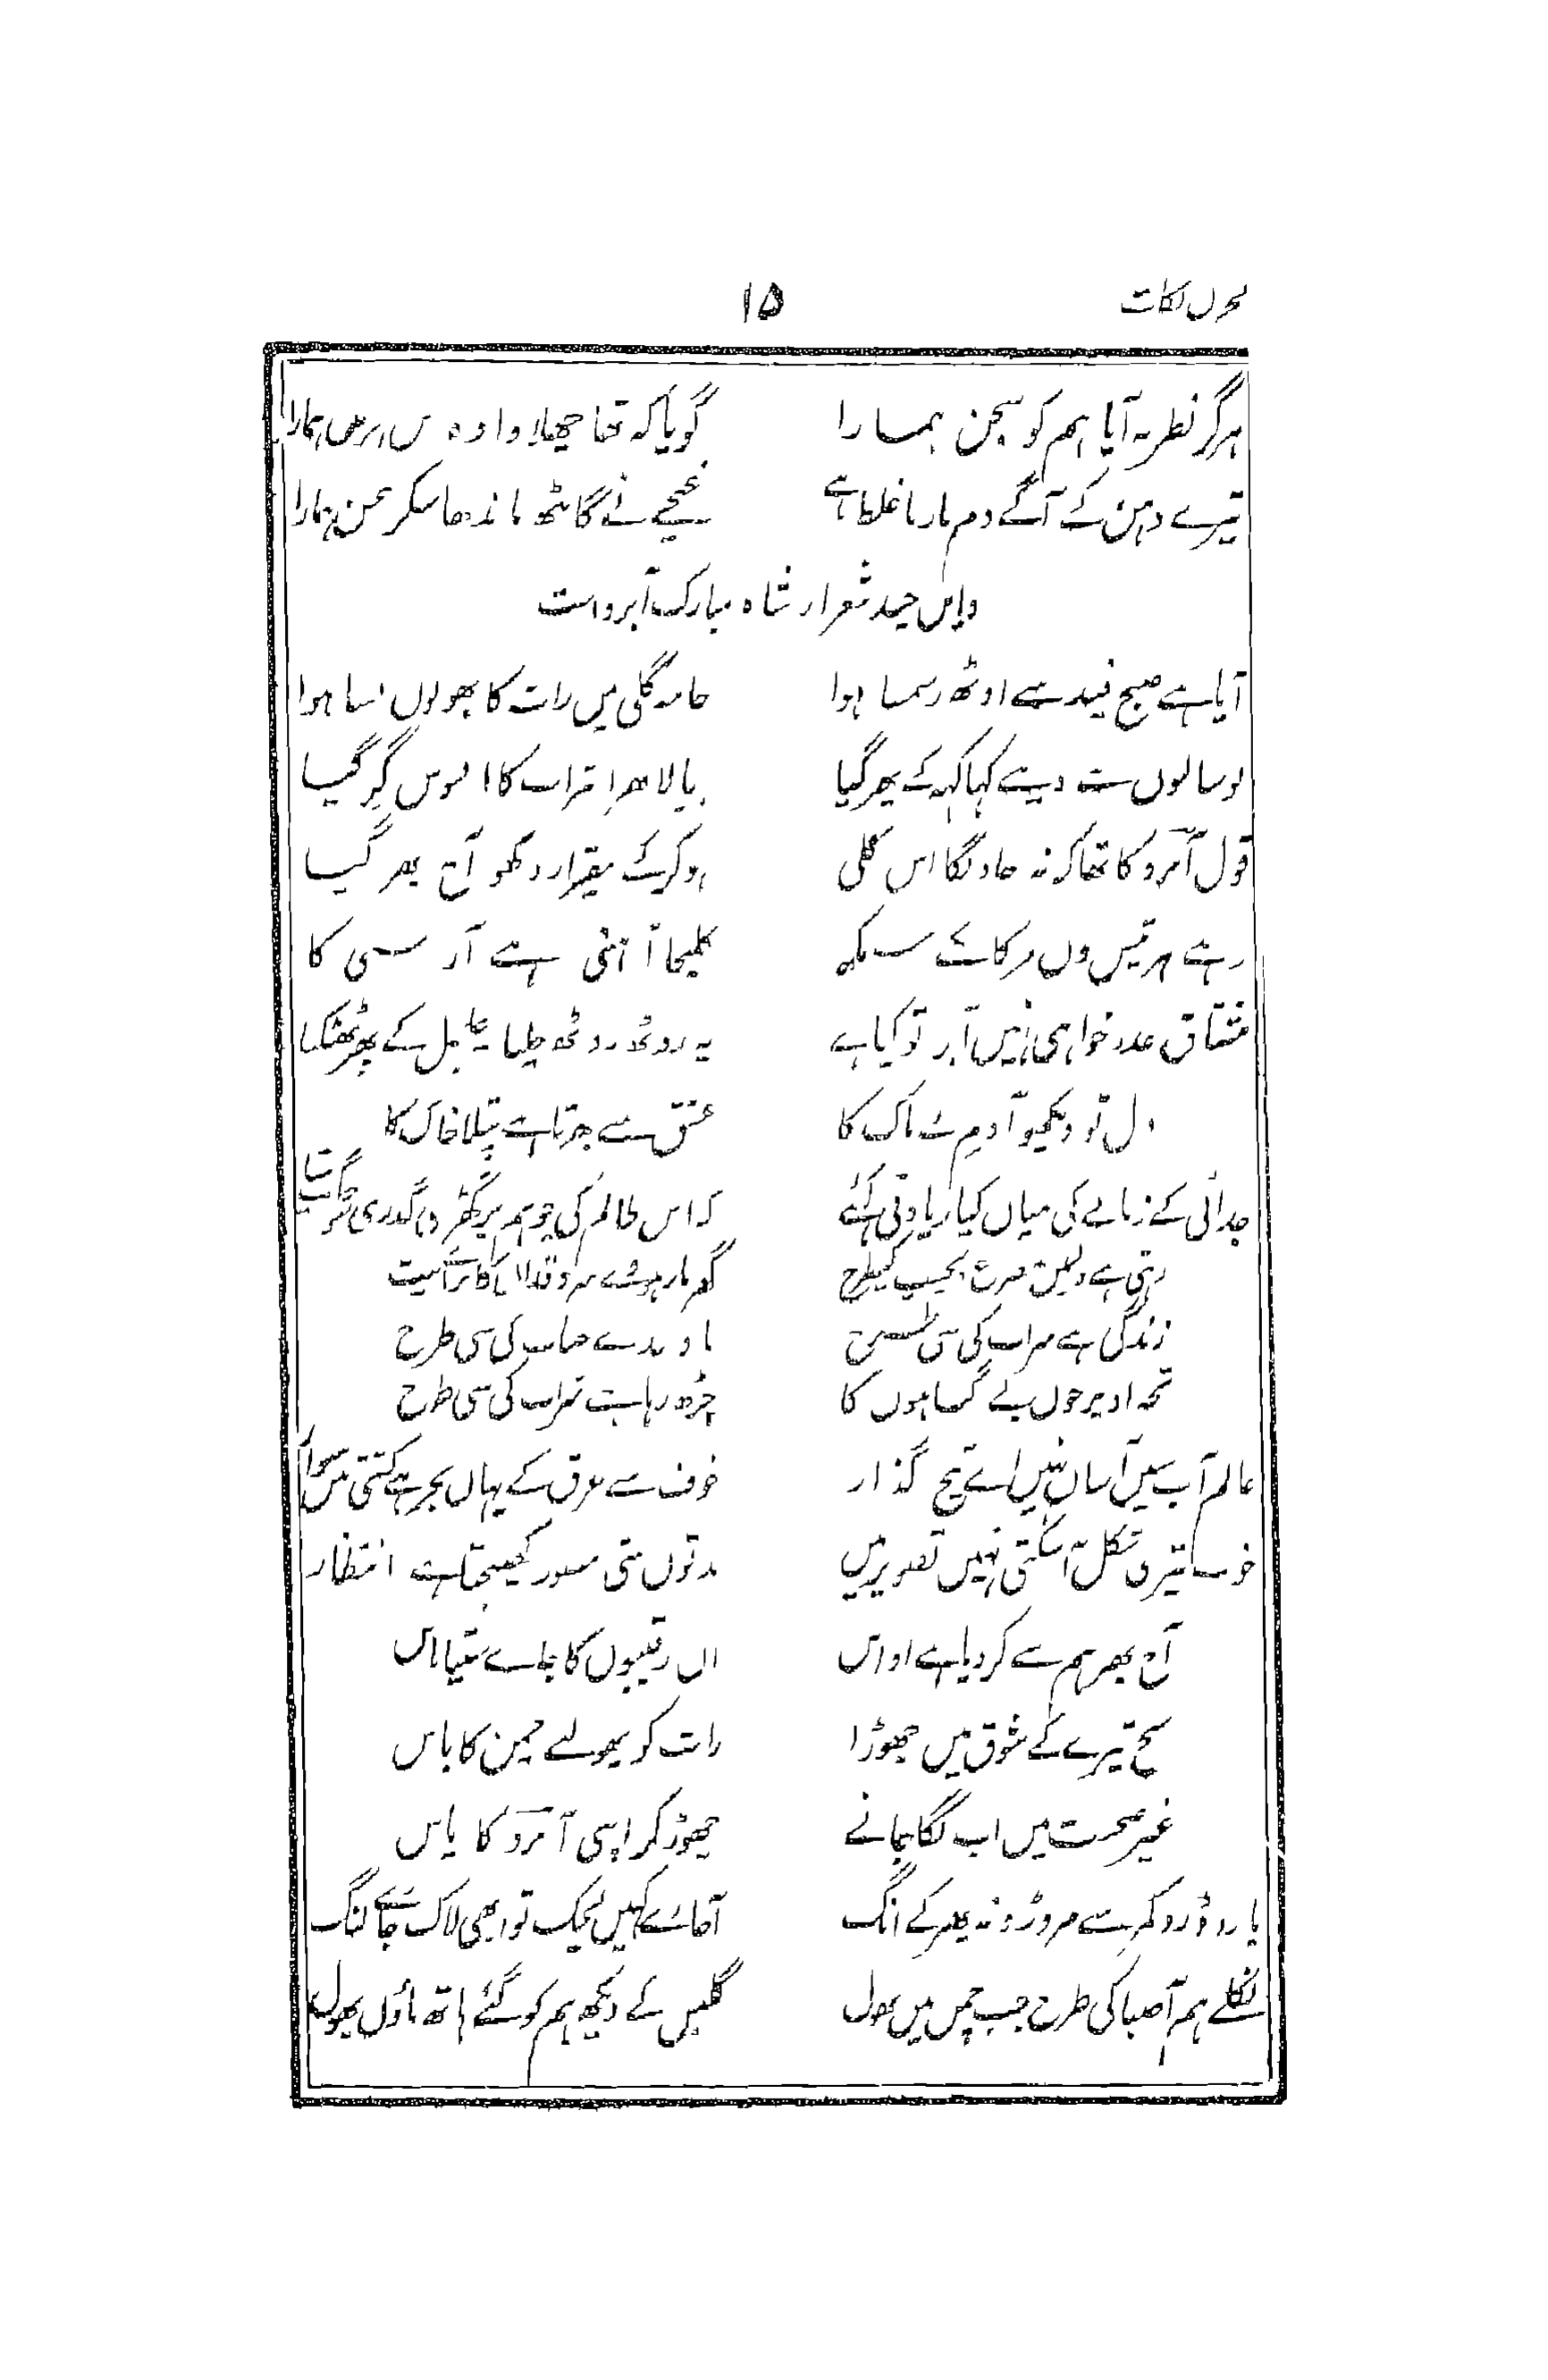 مخزن نکات ۱۵
ہرگز نظر نہ آیا ہم کو سجن ہمارا گویا کہ تھا چھلاوا وہ من ہرن ہمارا
تیرے دہن کے آگے دم مارنا غلط ہے غنچے نے گانٹھ باندھا سکر سخن ہمارا
واین چند شعر از شاہ مبارک آبرو است
آیا ہے صبح نیند سے اوٹھ رسمسا ہوا جامہ گلی میں رات کا پھولوں بسا ہوا
بوسا لبوں سے دینے کہا کہہ کے پھر گیا پیالا بھرا شراب کا افسوس گر گیا
قول آبرو کا تھا کہ نہ جاونگا اس گلی ہو کر کے بیقرار دیکھو آج پھر گیا
رہے ہر
کلیجا آتشی ہے آرسی کا
مشتاق عذر خواہی نہیں آبرو تو کیا ہے یہ روٹھ روٹھ چلنا چل کے پھر ٹھٹکنا
دل تو دیکھو آدم بے باک کا عشق سے بھرتا ہے پتلا خاک کا
جدائی کے زمانے کی میاں کیا زیادتی کہئے کہ اس ظالم کی جو ہم پر گھڑی گذری
زندگی ہے سراب کی سی طرح باد بندے حباب کی سی طرح
تجھ اوپر خون بے گناہوں کا چڑھ رہا ہے شراب کی سی طرح
عالم آب سیں آساں نہیں اے شیخ گذار خوف سے غرق کے یہاں بحر ہے کشتی میں سوار
خوب تیری شکل آ سکتی نہیں تصویر میں مدتوں ستی مصور کھینچتا ہے انتظار
آج پھر ہم سے کر دیا ہے اداس ان رقیبوں کا جاے ستیاناس
سج تیرے کے شوق میں چھوڑا رات کو پھول نے چمن کا باس
غیر صحبت میں اب لگا جانے چھوڑ کر اپنی آبرو کا پاس
یارو ڈرو کمر سے مروڑو نہ بھر کے انگ آجائے کہیں لچک تو ابھی لاگ جائے لنگ
نکلے ہم آ صبا کی طرح جب چمن میں پھول گلبن کے دیکھ ہم کو گئے ہاتھ پاؤں پھول